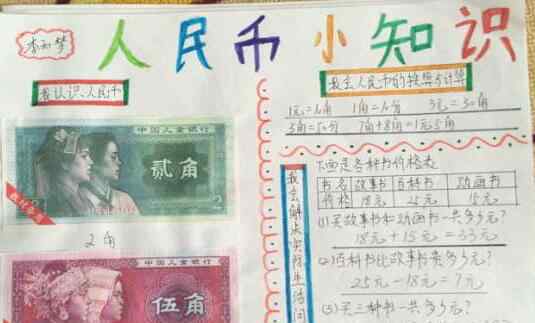 人民币小知识
我认识人民币
中国人民银行
贰角
2
2角
中国人民银行
伍角
我会人民币的换算与计算
1元=10角 1角=10分 3元=30角
3角=30分 7角+8角=1元5角
我会解决实际生活问
下面是各种书价格表
书名 故事书 百科书 动画书
价格 18元 25元 15元
(1)买故事书和动画书一共多少元?
18元+15元=33元
(2)百科书比故事书贵多少元?
25元-18元=7元
(3)买三种书一共多少元?